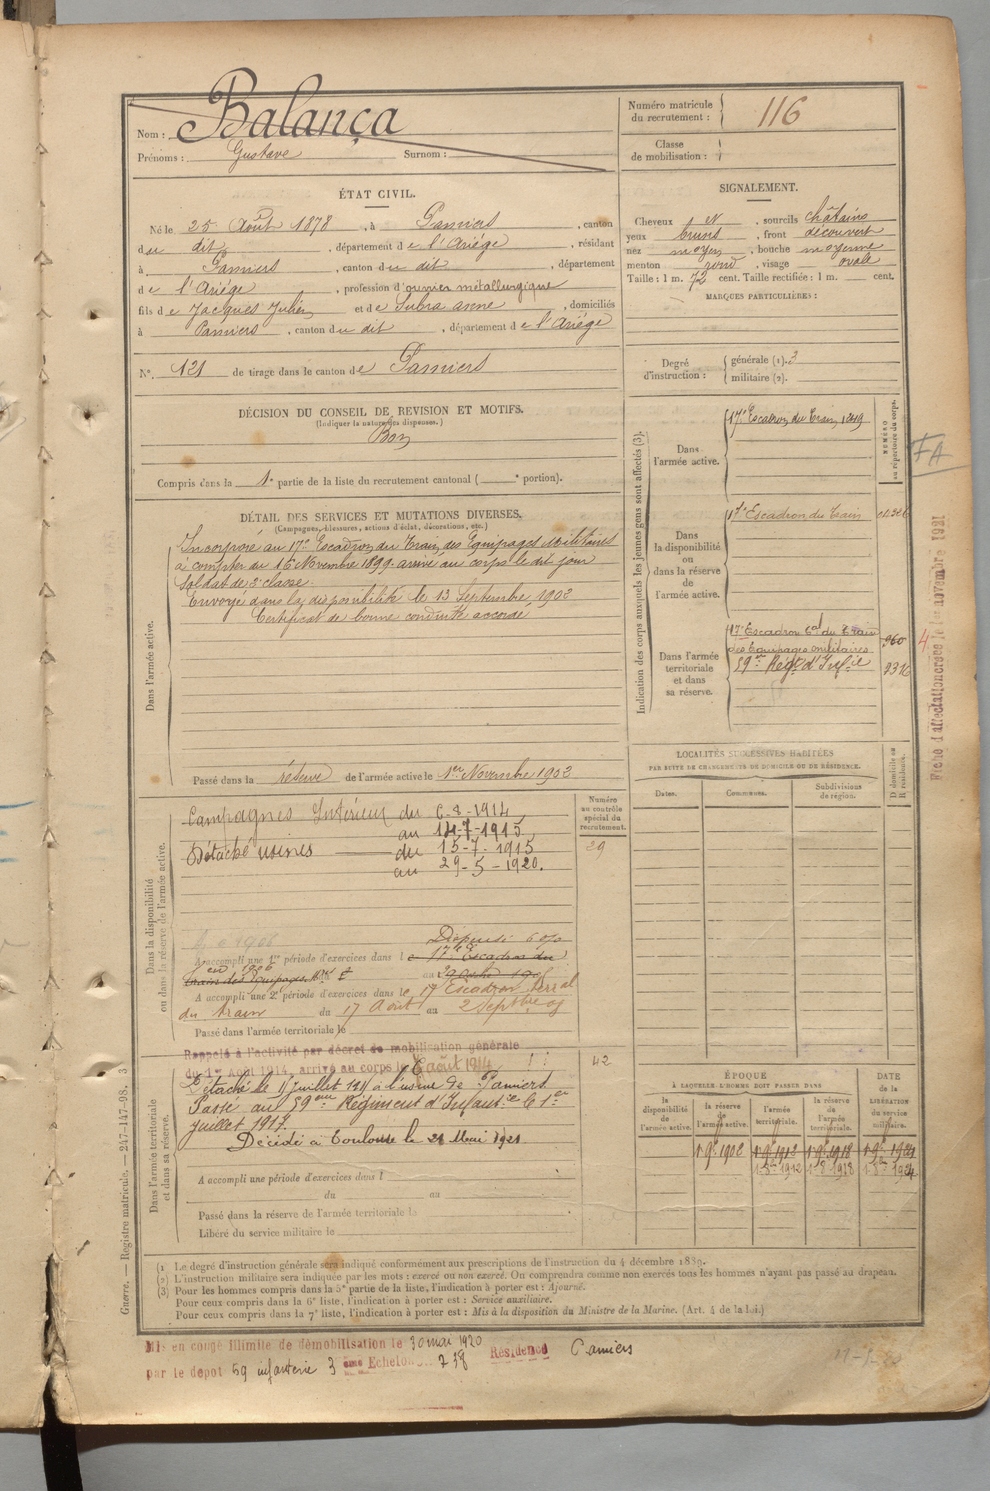 Nom : Balança
Prénoms : Gustave Surnom :
Numéro matricule du recrutement : 116
Classe de mobilisation :
ÉTAT CIVIL.
Né le 25 Août 1878, à Pamiers, canton
du dit, département de l'Ariège, résidant
à Pamiers, canton du dit, département
de l'Ariège, profession d'ouvrier métallurgique
fils de Jacques Julien et de Subra anne, domiciliés
à Pamiers, canton du dit, département de l'Ariège
N° 121 de tirage dans le canton de Pamiers
SIGNALEMENT.
Cheveux N, sourcils châtains
yeux bruns, front découvert
nez moyen, bouche moyenne
menton rond, visage ovale
Taille : 1 m. 72 cent. Taille rectifiée : 1 m. cent.
MARQUES PARTICULIÈRES :
Degré d'instruction : générale (1). 3
militaire (2).
DÉCISION DU CONSEIL DE REVISION ET MOTIFS.
(Indiquer la nature des dispenses.)
Bon
Compris dans la 1e partie de la liste du recrutement cantonal ( e portion).
DÉTAIL DES SERVICES ET MUTATIONS DIVERSES.
(Campagnes, blessures, actions d'éclat, décorations, etc.)
Dans l'armée active.
Incorporé au 17e Escadron du Train des Equipages Militaires
à compter du 16 Novembre 1899. arrivé au corps le dit jour
Soldat de 2e classe.
Envoyé dans la disponibilité le 13 Septembre 1902
Certificat de bonne conduite accordé
Passé dans la réserve de l'armée active le 1er Novembre 1902
Indication des corps auxquels les jeunes gens sont affectés (3).
NUMÉRO au répertoire du corps.
Dans l'armée active.
17e Escadron du Train 1249
Dans la disponibilité ou dans la réserve de l'armée active.
17e Escadron du Train
Dans l'armée territoriale et dans sa réserve.
17e Escadron Eal du Train
des Equipages militaires 960
59me Régt d'Infie
FA
Fiche d'affectation créée le 1er novembre 1921
LOCALITÉS SUCCESSIVES HABITÉES
PAR SUITE DE CHANGEMENTS DE DOMICILE OU DE RÉSIDENCE.
Dates. Communes. Subdivisions de région. D domicile ou R résidence.
Dans la disponibilité ou dans la réserve de l'armée active.
Numéro au contrôle spécial du recrutement.
29
Campagnes Intérieur du 6-8-1914
au 14-7-1915
Détaché usines du 15-7-1915
au 29-5-1920.
A accompli une 1re période d'exercices dans le 17e Escadron du
train des Equipages Mres
A accompli une 2e période d'exercices dans le 17 Escadron terral
du train du 17 Août au 2 Septbre 08
Passé dans l'armée territoriale le
Dans l'armée territoriale et dans sa réserve.
42
Rappelé à l'activité par décret de mobilisation générale
du 1er Août 1914, arrivé au corps le 6 août 1914
Détaché le 15 juillet 1915 à l'usine de Pamiers
Passé au 59eme Régiment d'Infantie le 1er
juillet 1917.
Décédé à Toulouse le 21 Mai 1921
A accompli une période d'exercices dans l
du au
Passé dans la réserve de l'armée territoriale le
Libéré du service militaire le
ÉPOQUE
À LAQUELLE L'HOMME DOIT PASSER DANS
la disponibilité de l'armée active. la réserve de l'armée active. l'armée territoriale. la réserve de l'armée territoriale.
DATE de la LIBÉRATION du service militaire.
1 9bre 1902 1 9bre 1912 1 9bre 1918 1 9bre 1924
(1) Le degré d'instruction générale sera indiqué conformément aux prescriptions de l'instruction du 4 décembre 1889.
(2) L'instruction militaire sera indiquée par les mots : exercé ou non exercé. On comprendra comme non exercés tous les hommes n'ayant pas passé au drapeau.
(3) Pour les hommes compris dans la 5e partie de la liste, l'indication à porter est : Ajourné.
Pour ceux compris dans la 6e liste, l'indication à porter est : Service auxiliaire.
Pour ceux compris dans la 7e liste, l'indication à porter est : Mis à la disposition du Ministre de la Marine. (Art. 4 de la loi.)
Guerre. — Registre matricule. — 247-147-98. 3
Mis en congé illimité de démobilisation le 30 mai 1920 Résidence Pamiers
par le dépôt 59 infanterie 3 ème Echelon 738